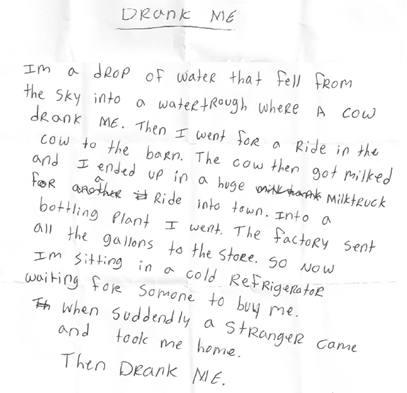 DRANK ME
Im a dROP OF water that fell FROM
the sky into a watertrough where A cow
dRANK ME. Then I went foR a Ride in the
cow to the barn. The cow then got milked
and I ended up in a huge Milktruck
foR a Ride into town. Into a
bottling Plant I went. The factory sent
all the gallons to the store. So Now
Im Sitting in a cold RefRigeratoR
waiting foRe Somone to buy me.
When Suddendly a StRangeR came
and took me home.
Then DRANK ME.